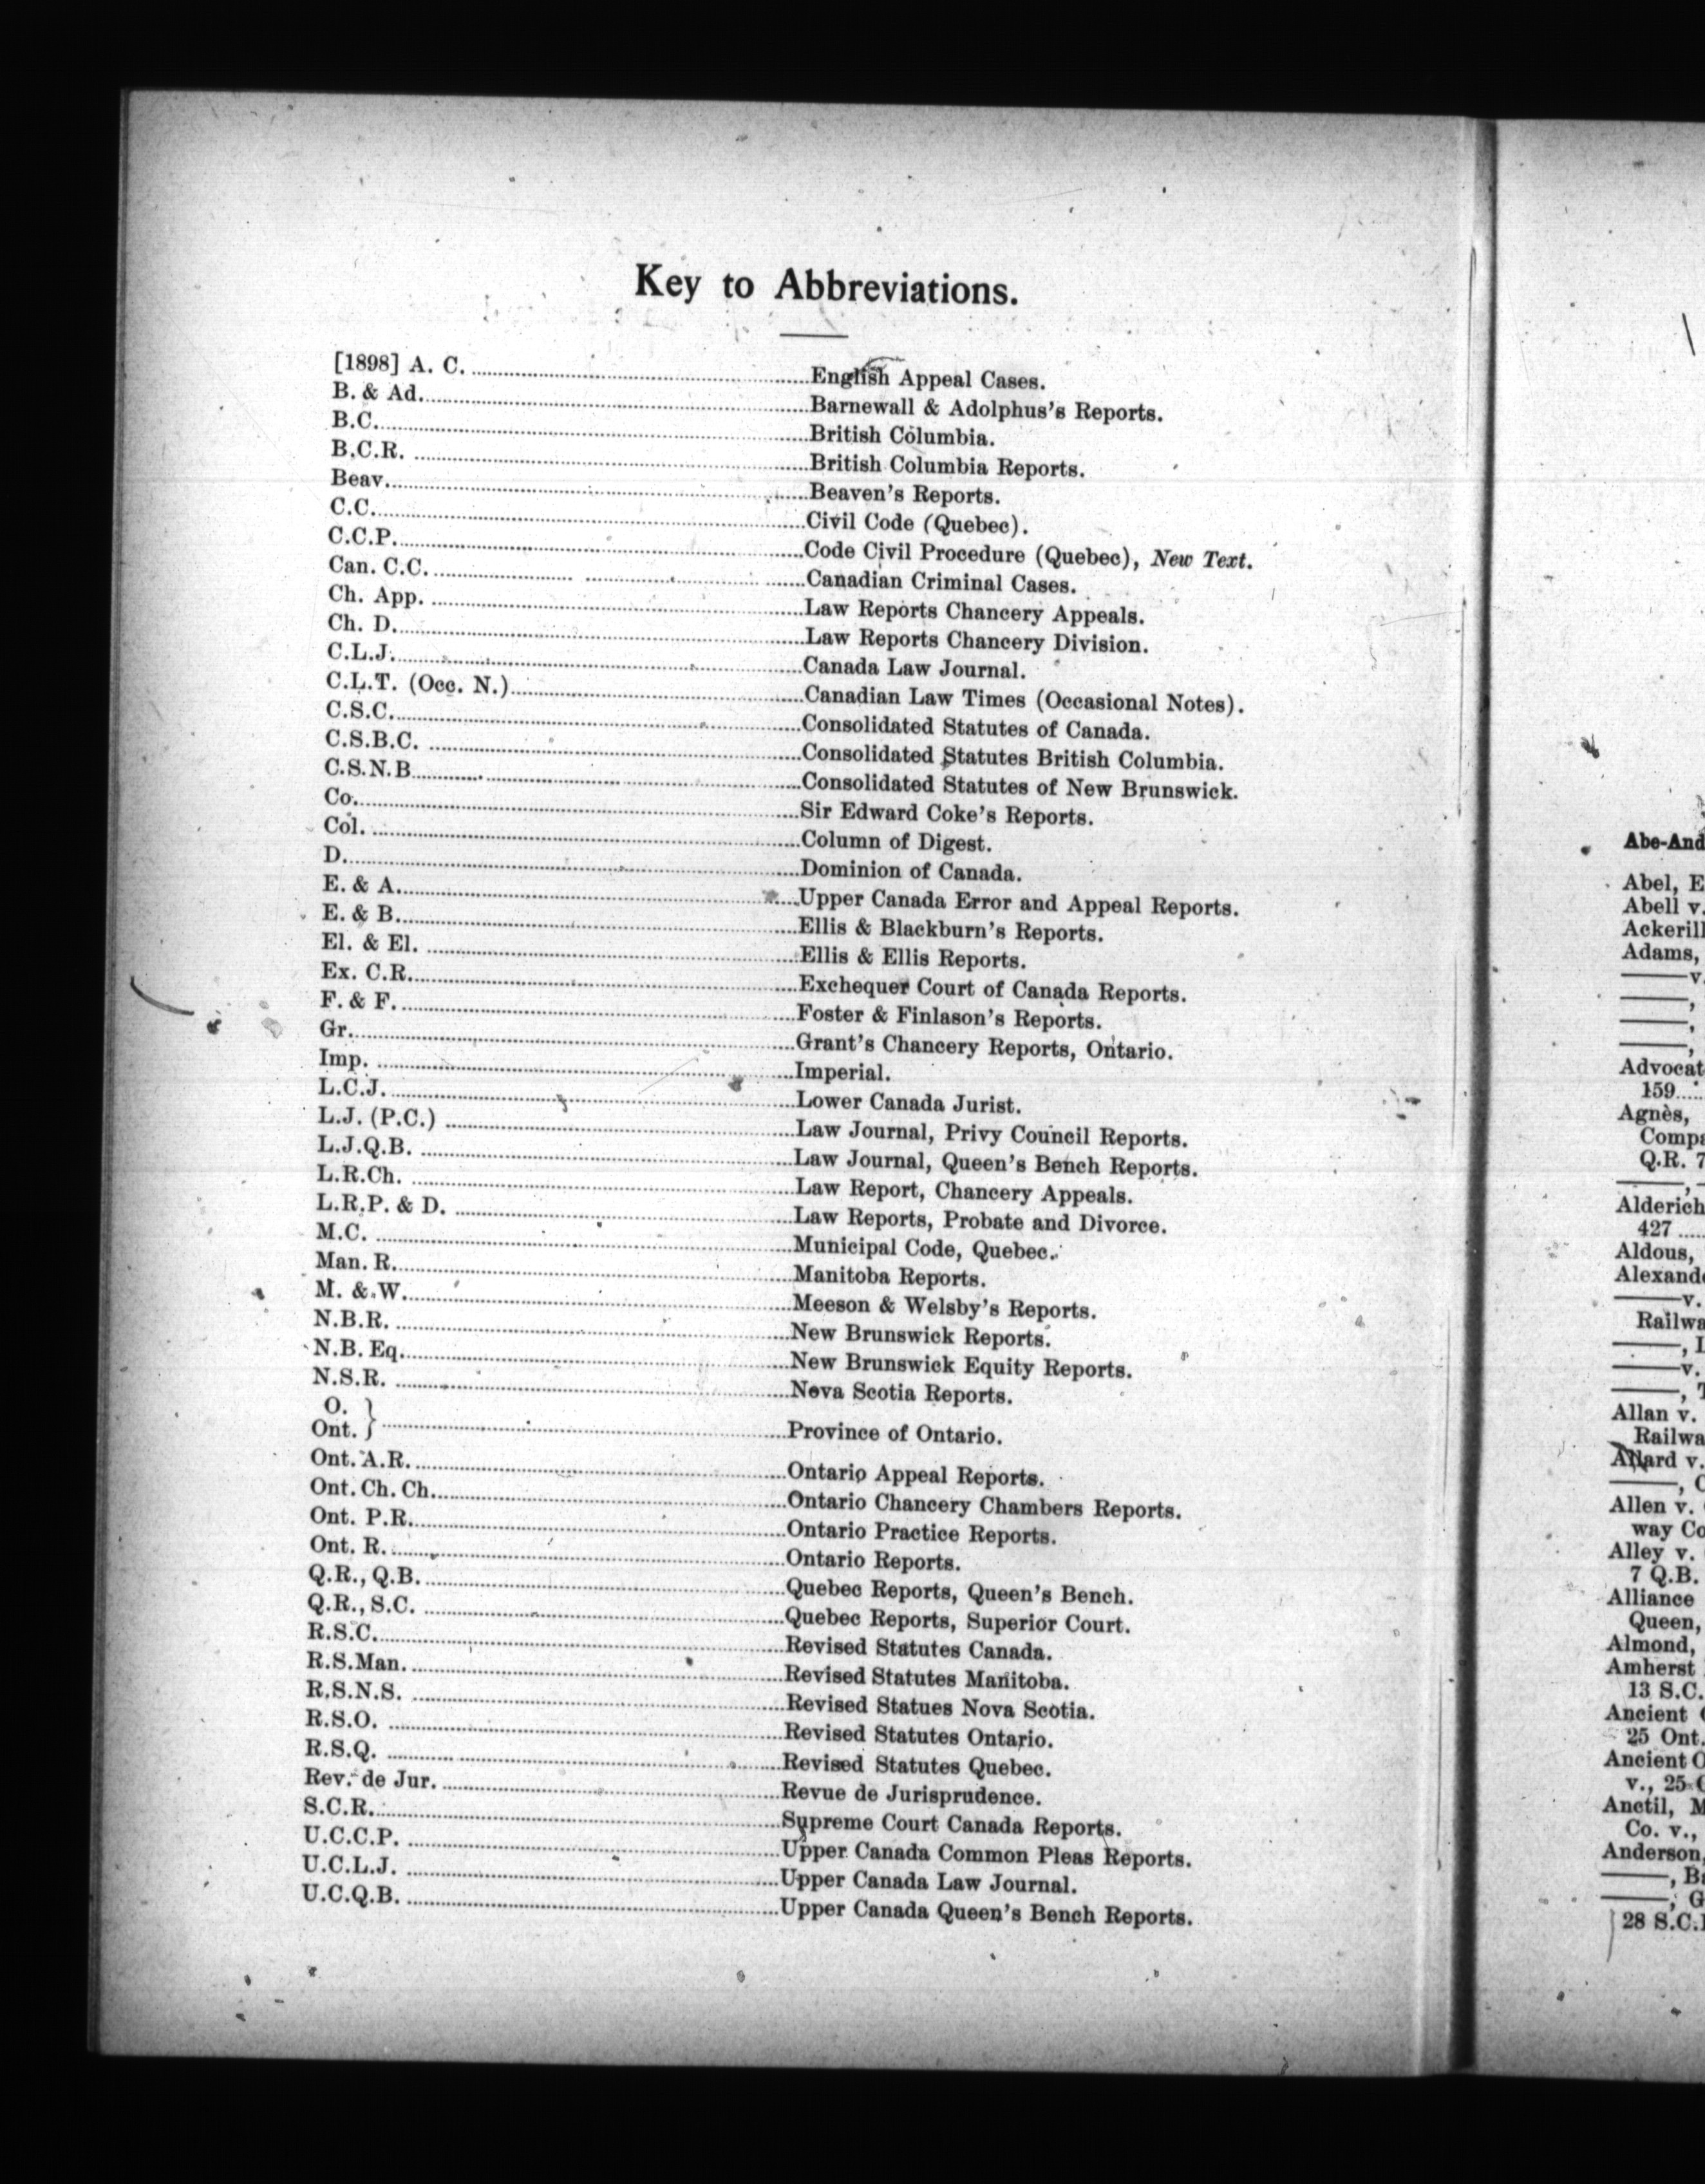 Key to Abbreviations.
[1898] A. C. ........ English Appeal Cases.
B. & Ad. ........ Barnewall & Adolphus's Reports.
B.C. ........ British Columbia.
B.C.R. ........ British Columbia Reports.
Beav. ........ Beaven's Reports.
C.C. ........ Civil Code (Quebec).
C.C.P. ........ Code Civil Procedure (Quebec), New Text.
Can. C.C. ........ Canadian Criminal Cases.
Ch. App. ........ Law Reports Chancery Appeals.
Ch. D. ........ Law Reports Chancery Division.
C.L.J. ........ Canada Law Journal.
C.L.T. (Occ. N.) ........ Canadian Law Times (Occasional Notes).
C.S.C. ........ Consolidated Statutes of Canada.
C.S.B.C. ........ Consolidated Statutes British Columbia.
C.S.N.B. ........ Consolidated Statutes of New Brunswick.
Co. ........ Sir Edward Coke's Reports.
Col. ........ Column of Digest.
D. ........ Dominion of Canada.
E. & A. ........ Upper Canada Error and Appeal Reports.
E. & B. ........ Ellis & Blackburn's Reports.
El. & El. ........ Ellis & Ellis Reports.
Ex. C.R. ........ Exchequer Court of Canada Reports.
F. & F. ........ Foster & Finlason's Reports.
Gr. ........ Grant's Chancery Reports, Ontario.
Imp. ........ Imperial.
L.C.J. ........ Lower Canada Jurist.
L.J. (P.C.) ........ Law Journal, Privy Council Reports.
L.J.Q.B. ........ Law Journal, Queen's Bench Reports.
L.R.Ch. ........ Law Report, Chancery Appeals.
L.R.P. & D. ........ Law Reports, Probate and Divorce.
M.C. ........ Municipal Code, Quebec.
Man. R. ........ Manitoba Reports.
M. & W. ........ Meeson & Welsby's Reports.
N.B.R. ........ New Brunswick Reports.
N.B. Eq. ........ New Brunswick Equity Reports.
N.S.R. ........ Nova Scotia Reports.
O.
Ont. } ........ Province of Ontario.
Ont. A.R. ........ Ontario Appeal Reports.
Ont. Ch. Ch. ........ Ontario Chancery Chambers Reports.
Ont. P.R. ........ Ontario Practice Reports.
Ont. R. ........ Ontario Reports.
Q.R., Q.B. ........ Quebec Reports, Queen's Bench.
Q.R., S.C. ........ Quebec Reports, Superior Court.
R.S.C. ........ Revised Statutes Canada.
R.S.Man. ........ Revised Statutes Manitoba.
R.S.N.S. ........ Revised Statues Nova Scotia.
R.S.O. ........ Revised Statutes Ontario.
R.S.Q. ........ Revised Statutes Quebec.
Rev. de Jur. ........ Revue de Jurisprudence.
S.C.R. ........ Supreme Court Canada Reports.
U.C.C.P. ........ Upper Canada Common Pleas Reports.
U.C.L.J. ........ Upper Canada Law Journal.
U.C.Q.B. ........ Upper Canada Queen's Bench Reports.
Abe-And
Abel, E
Abell v.
Ackerill
Adams,
——v.
——,
——,
——,
Advocat
159.....
Agnès,
Compa
Q.R. 7
——,
Alderich
427 .....
Aldous,
Alexand
——v.
Railwa
——,
——v.
——,
Allan v.
Railwa
Allard v.
——, C
Allen v.
way Co
Alley v.
7 Q.B.
Alliance
Queen,
Almond,
Amherst
13 S.C.
Ancient
25 Ont.
Ancient O
v., 25
Anctil, M
Co. v.,
Anderson,
——, B
——, G
28 S.C.